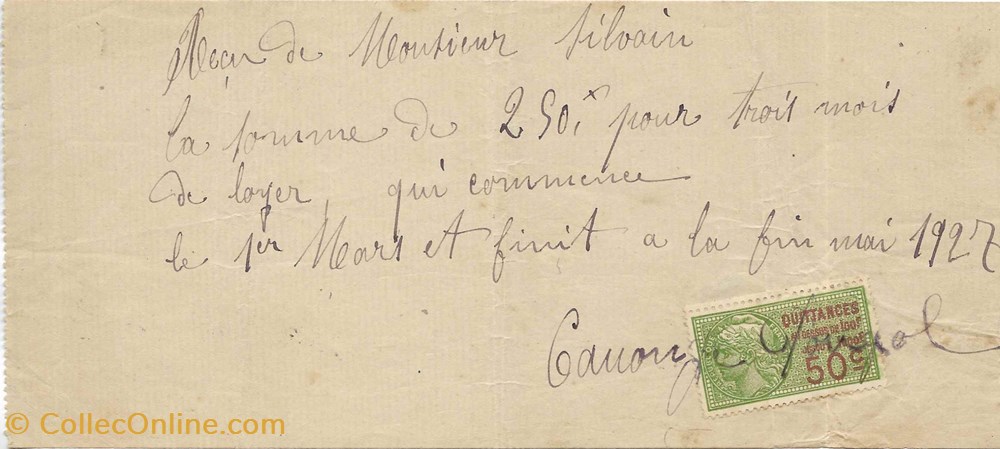 Reçu de Monsieur Silvain
la somme de 250, pour trois mois
de loyer, qui commence
le 1er Mars et finit a la fin mai 1927
QUITTANCES
AU DESSUS DE 100F
50c
© CollecOnline.com